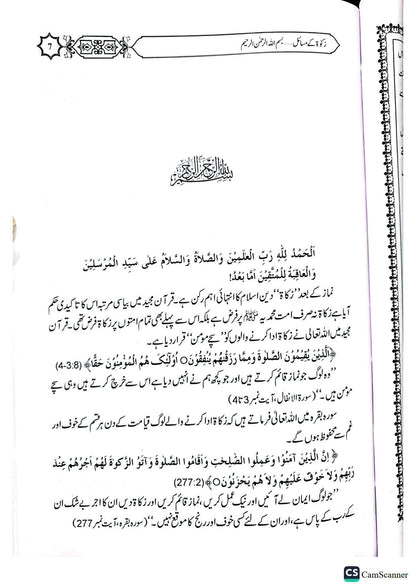 زکوٰۃ کے مسائل ..... بسم اللہ الرحمٰن الرحیم
7
بسم الله الرحمن الرحيم
اَلْحَمْدُ لِلّٰهِ رَبِّ الْعٰلَمِيْنَ وَالصَّلَاةُ وَالسَّلَامُ عَلٰى سَيِّدِ الْمُرْسَلِيْنَ
وَالْعَاقِبَةُ لِلْمُتَّقِيْنَ اَمَّا بَعْدُ!
نماز کے بعد ’’زکاۃ‘‘ دین اسلام کا انتہائی اہم رکن ہے۔ قرآن مجید میں بیاسی مرتبہ اس کا تاکیدی حکم
آیا ہے زکاۃ نہ صرف امت محمدیہ ﷺ پر فرض ہے بلکہ اس سے پہلے بھی تمام امتوں پر زکاۃ فرض تھی۔ قرآن
مجید میں اللہ تعالیٰ نے زکاۃ ادا کرنے والوں کو ’’سچے مؤمن‘‘ قرار دیا ہے۔
﴿اَلَّذِيْنَ يُقِيْمُوْنَ الصَّلٰوةَ وَمِمَّا رَزَقْنٰهُمْ يُنْفِقُوْنَ○ اُولٰٓئِكَ هُمُ الْمُؤْمِنُوْنَ حَقًّا﴾ (4-3:8)
’’وہ لوگ جو نماز قائم کرتے ہیں اور جو کچھ ہم نے انہیں دیا ہے اس سے خرچ کرتے ہیں وہی سچے
مؤمن ہیں۔‘‘ (سورۃ الانفال، آیت نمبر 3 تا 4)
سورہ بقرہ میں اللہ تعالیٰ فرماتے ہیں کہ زکاۃ ادا کرنے والے لوگ قیامت کے دن ہر قسم کے خوف اور
غم سے محفوظ ہوں گے۔
﴿اِنَّ الَّذِيْنَ آمَنُوْا وَعَمِلُوا الصّٰلِحٰتِ وَاَقَامُوا الصَّلٰوةَ وَآتَوُ الزَّكٰوةَ لَهُمْ اَجْرُهُمْ عِنْدَ
رَبِّهِمْ وَلَا خَوْفٌ عَلَيْهِمْ وَلَا هُمْ يَحْزَنُوْنَ○﴾ (277:2)
’’جو لوگ ایمان لے آئے اور نیک عمل کریں، نماز قائم کریں اور زکاۃ دیں ان کا اجر بے شک ان
کے رب کے پاس ہے، اور ان کے لئے کسی خوف اور رنج کا موقع نہیں۔‘‘ (سورہ بقرہ، آیت نمبر 277)
CS CamScanner